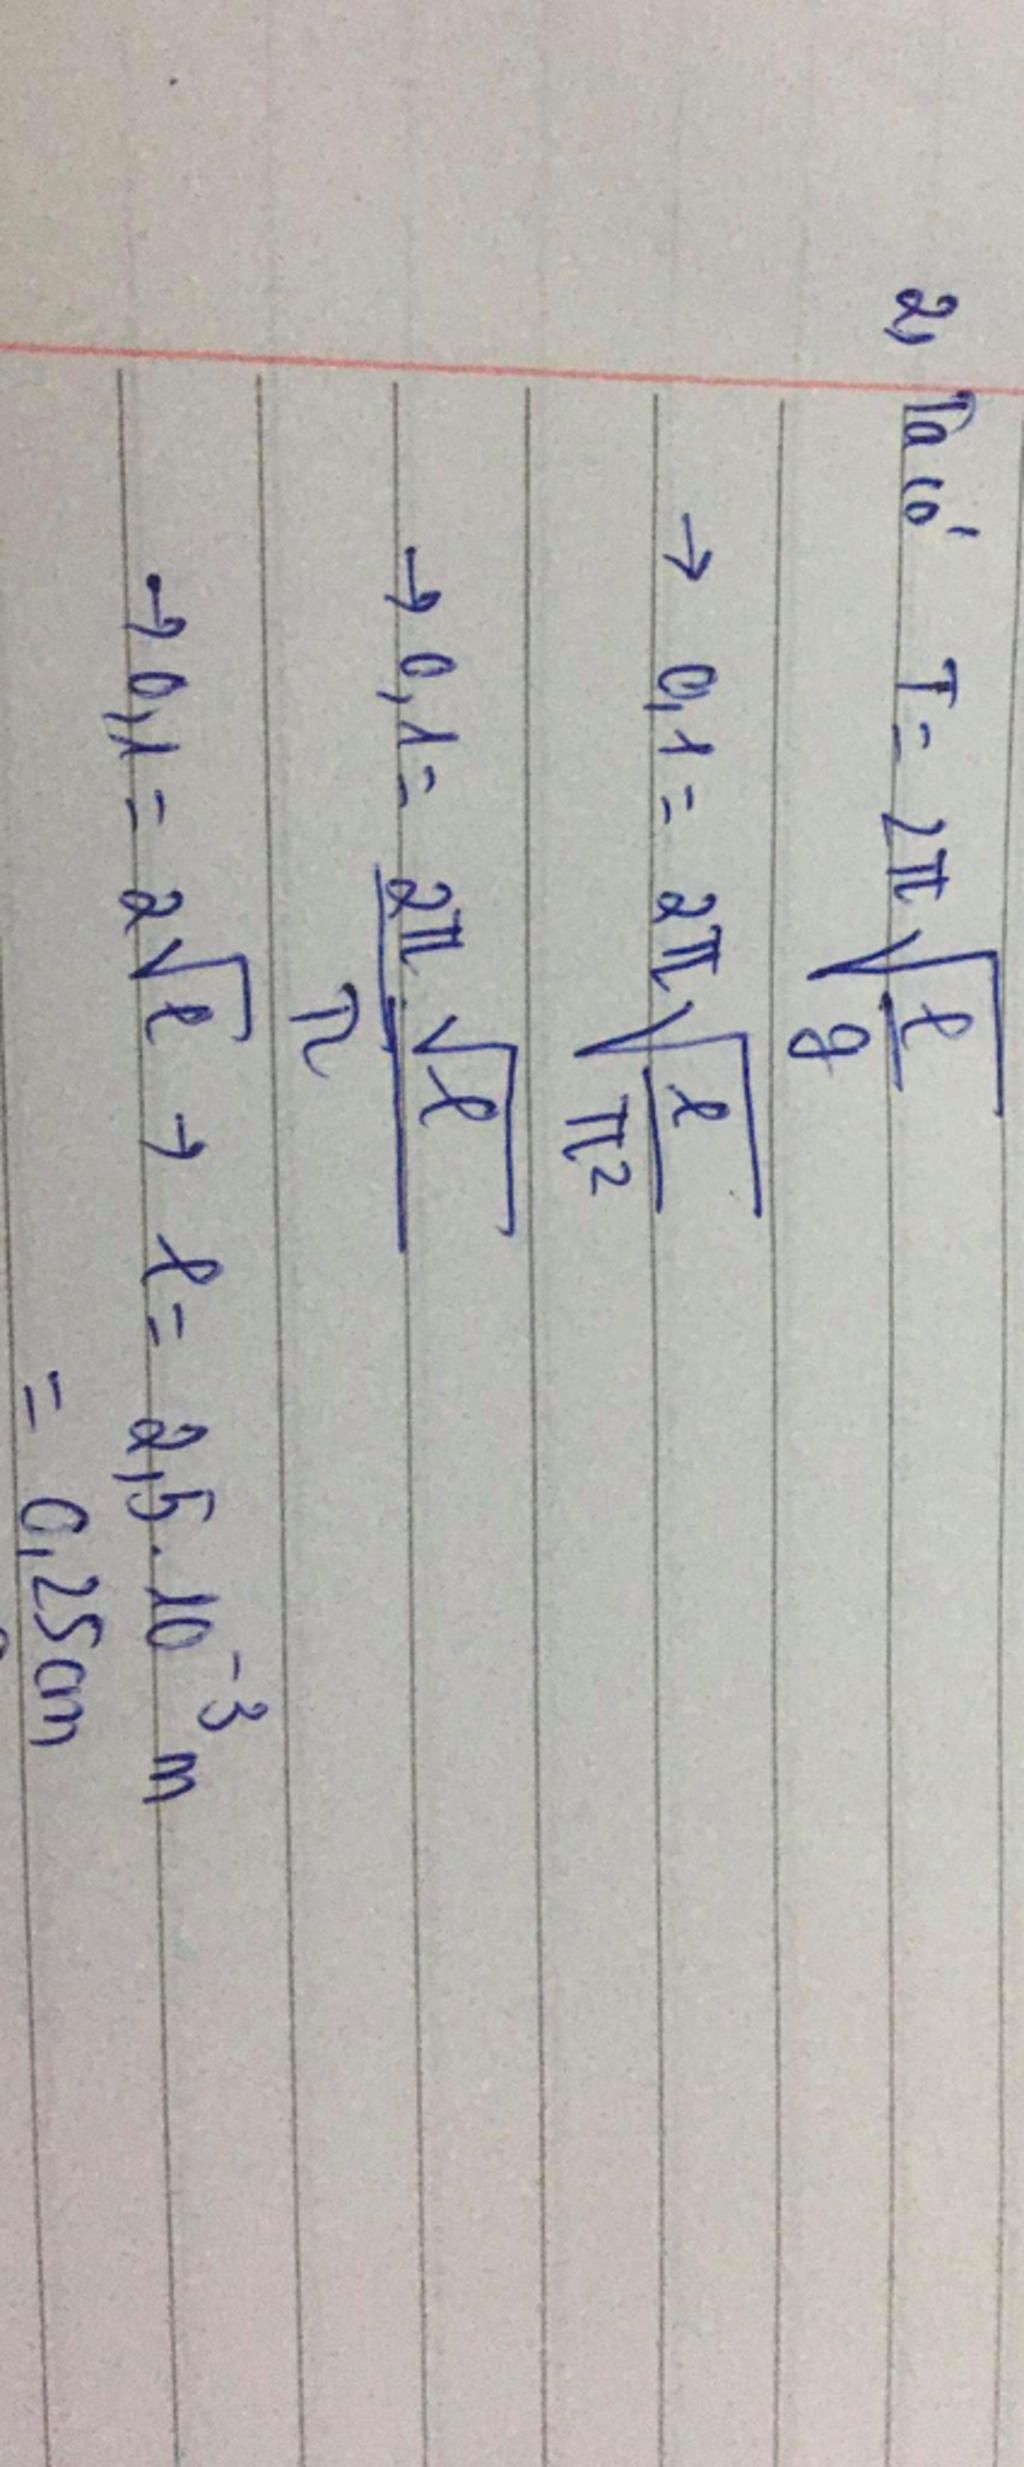 2, Ta có T = 2π√(ℓ/g)
→ 0,1 = 2π√(ℓ/π²)
→ 0,1 = (2π.√ℓ)/π
→ 0,1 = 2√ℓ → ℓ = 2,5.10⁻³ m
= 0,25cm